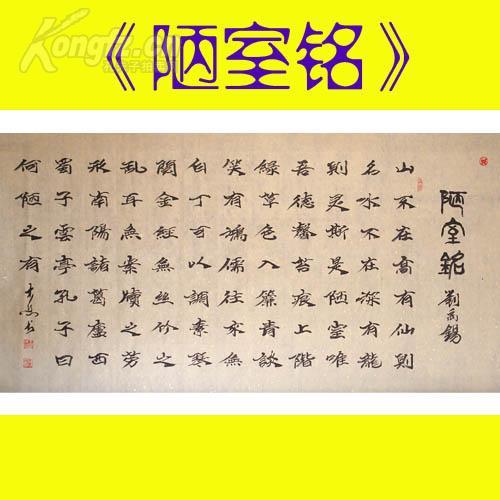 Kongfz.cn
《陋室铭》
陋室銘
劉禹錫
山不在高有仙則
名水不在深有龍
則灵斯是陋室唯
吾德馨苔痕上階
綠草色入簾青談
笑有鴻儒往來無
白丁可以調素琴
閱金經無絲竹之
乱耳無案牘之劳
形南陽諸葛廬西
蜀子雲亭孔子曰
何陋之有